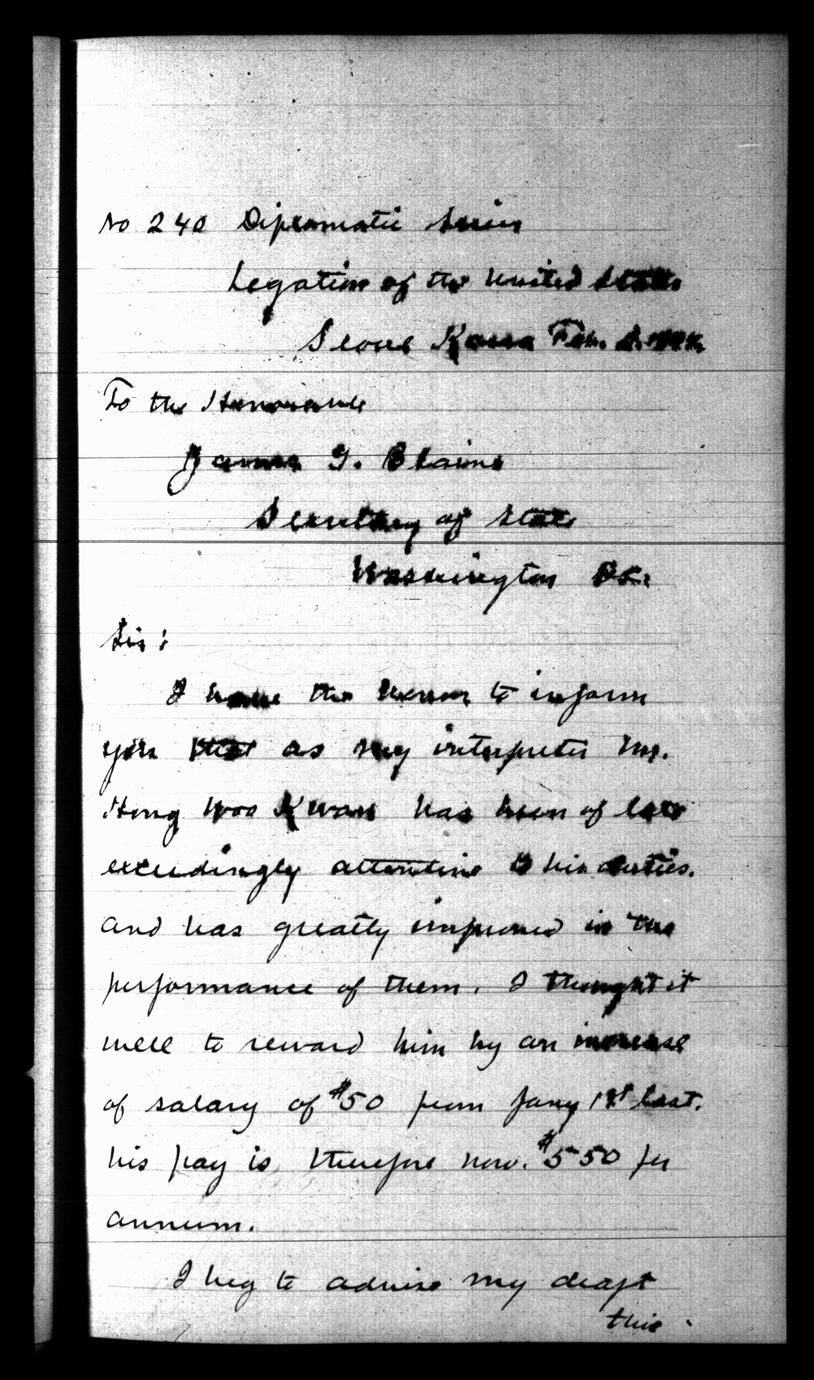 No 240 Diplomatic Series
Legation of the United States
Seoul Korea Feb.
To the Honorable
James G. Blaine
Secretary of State
Washington D.C.
Sir:
I have the honor to inform
you that as my interpreter Mr.
Hong Woo Kwan has been of late
exceedingly attentive to his duties.
and has greatly improved in the
performance of them. I thought it
well to reward him by an increase
of salary of $50 from Jany 1st last.
his pay is therefore now. $550 per
annum.
I beg to advise my draft
this